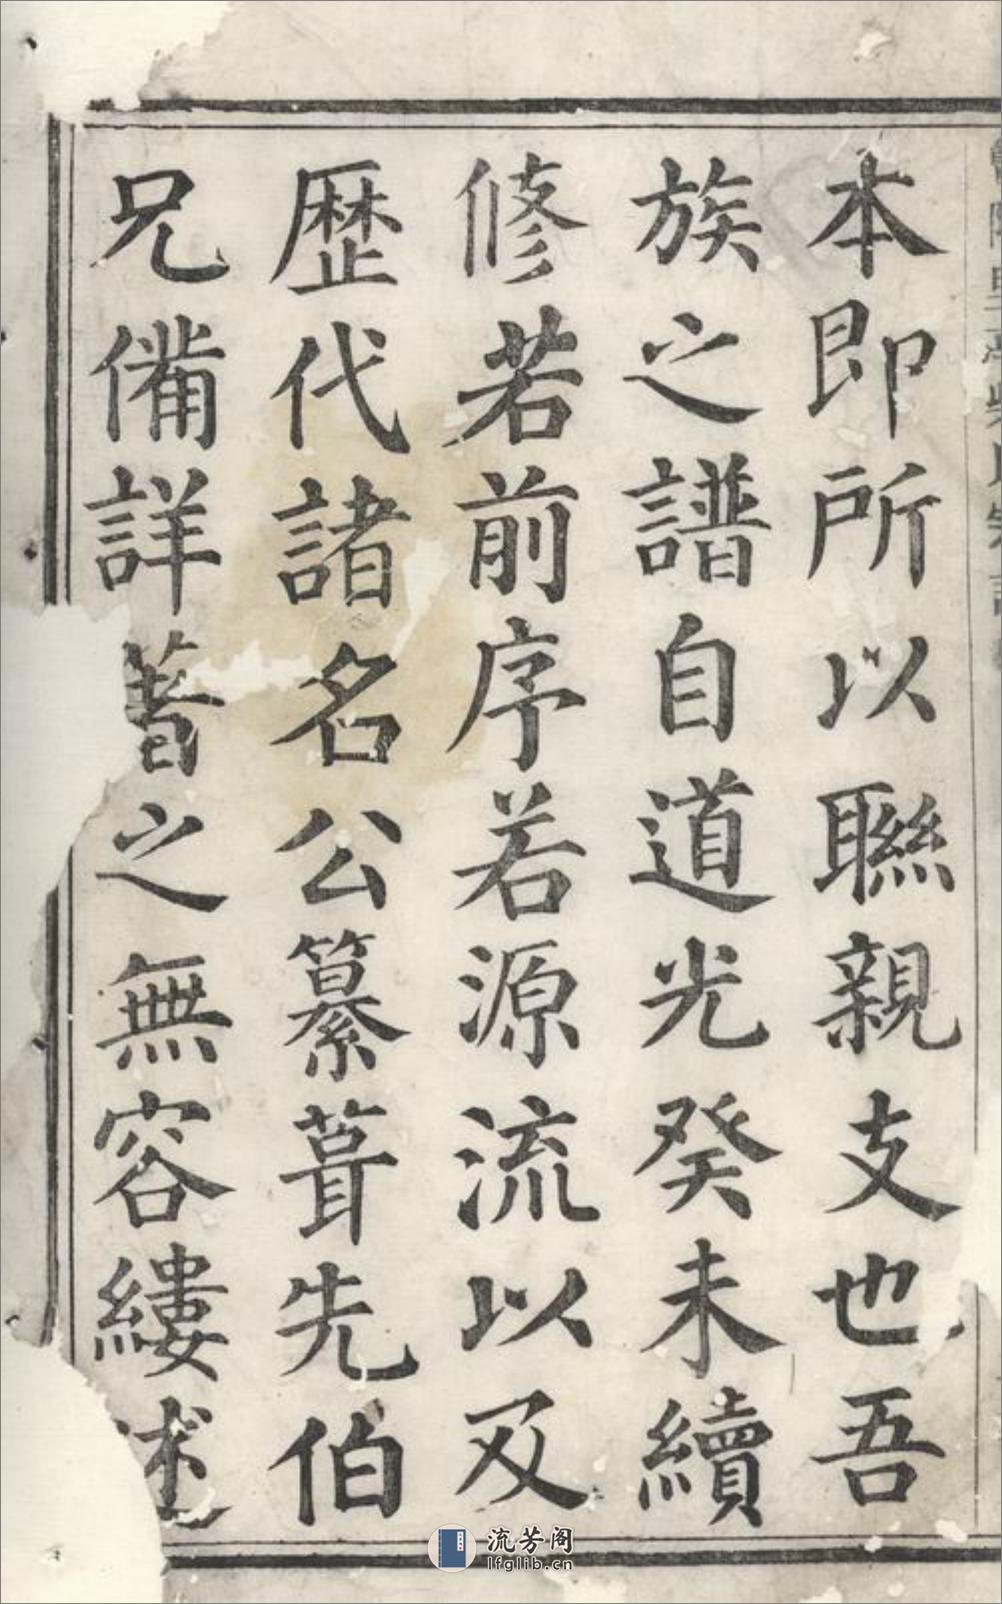 本即所以聯親支也吾
族之譜自道光癸未續
修若前序若源流以及
歷代諸名公纂葺先伯
兄備詳著之無容縷述
流芳阁
lfglib.cn